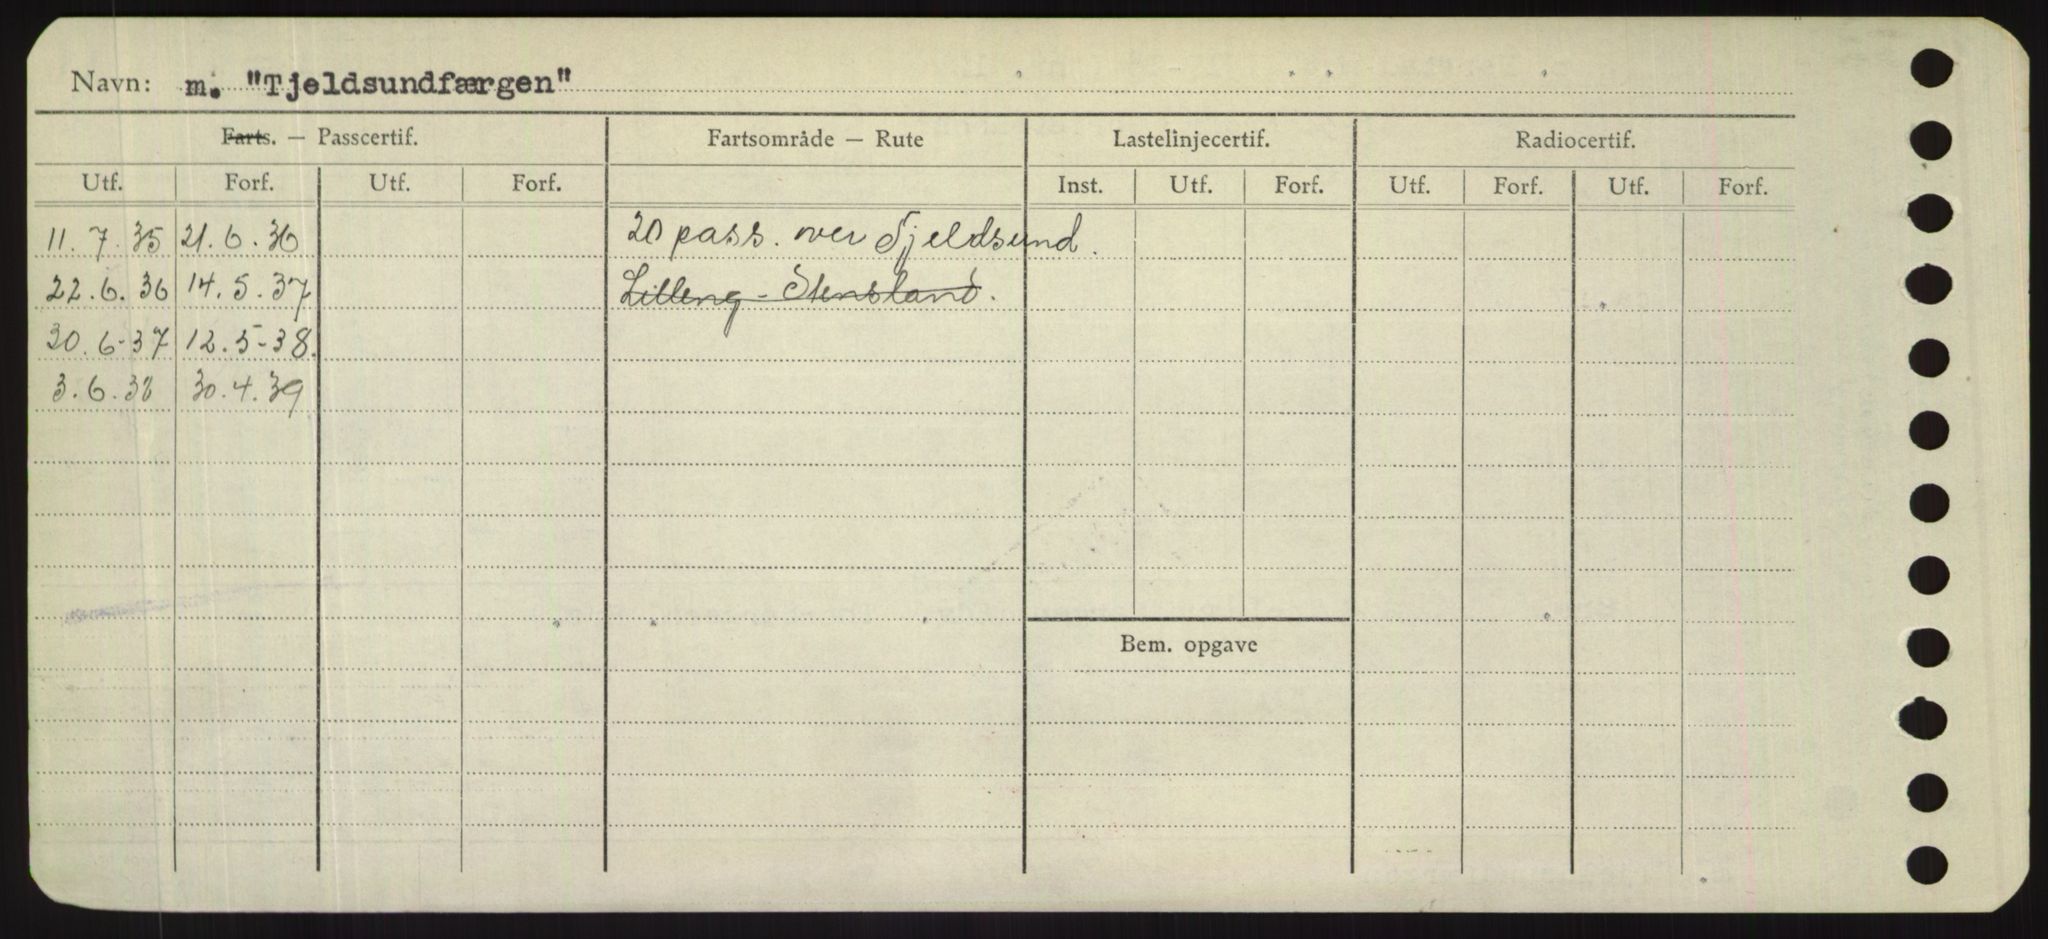 Navn: m. "Tjeldsundfærgen"
Farts. — Passcertif. Fartsområde — Rute Lastelinjecertif. Radiocertif.
Utf. Forf. Utf. Forf. Inst. Utf. Forf. Utf. Forf. Utf. Forf.
11.7.35 21.6.36 20 pass. over Tjeldsund.
22.6.36 14.5.37 Lilleng - Stensland.
30.6-37 12.5-38.
3.6.38 30.4.39
Bem. opgave